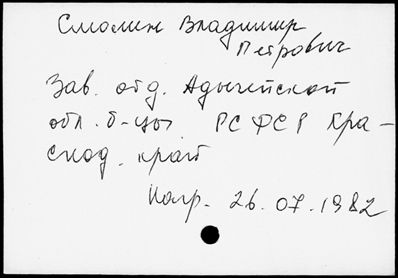 Смолин Владимир
Петрович
Зав. отд. Адыгейской
обл. б-цы. РСФСР Кра-
снод. край
Нагр. 26.07.1982